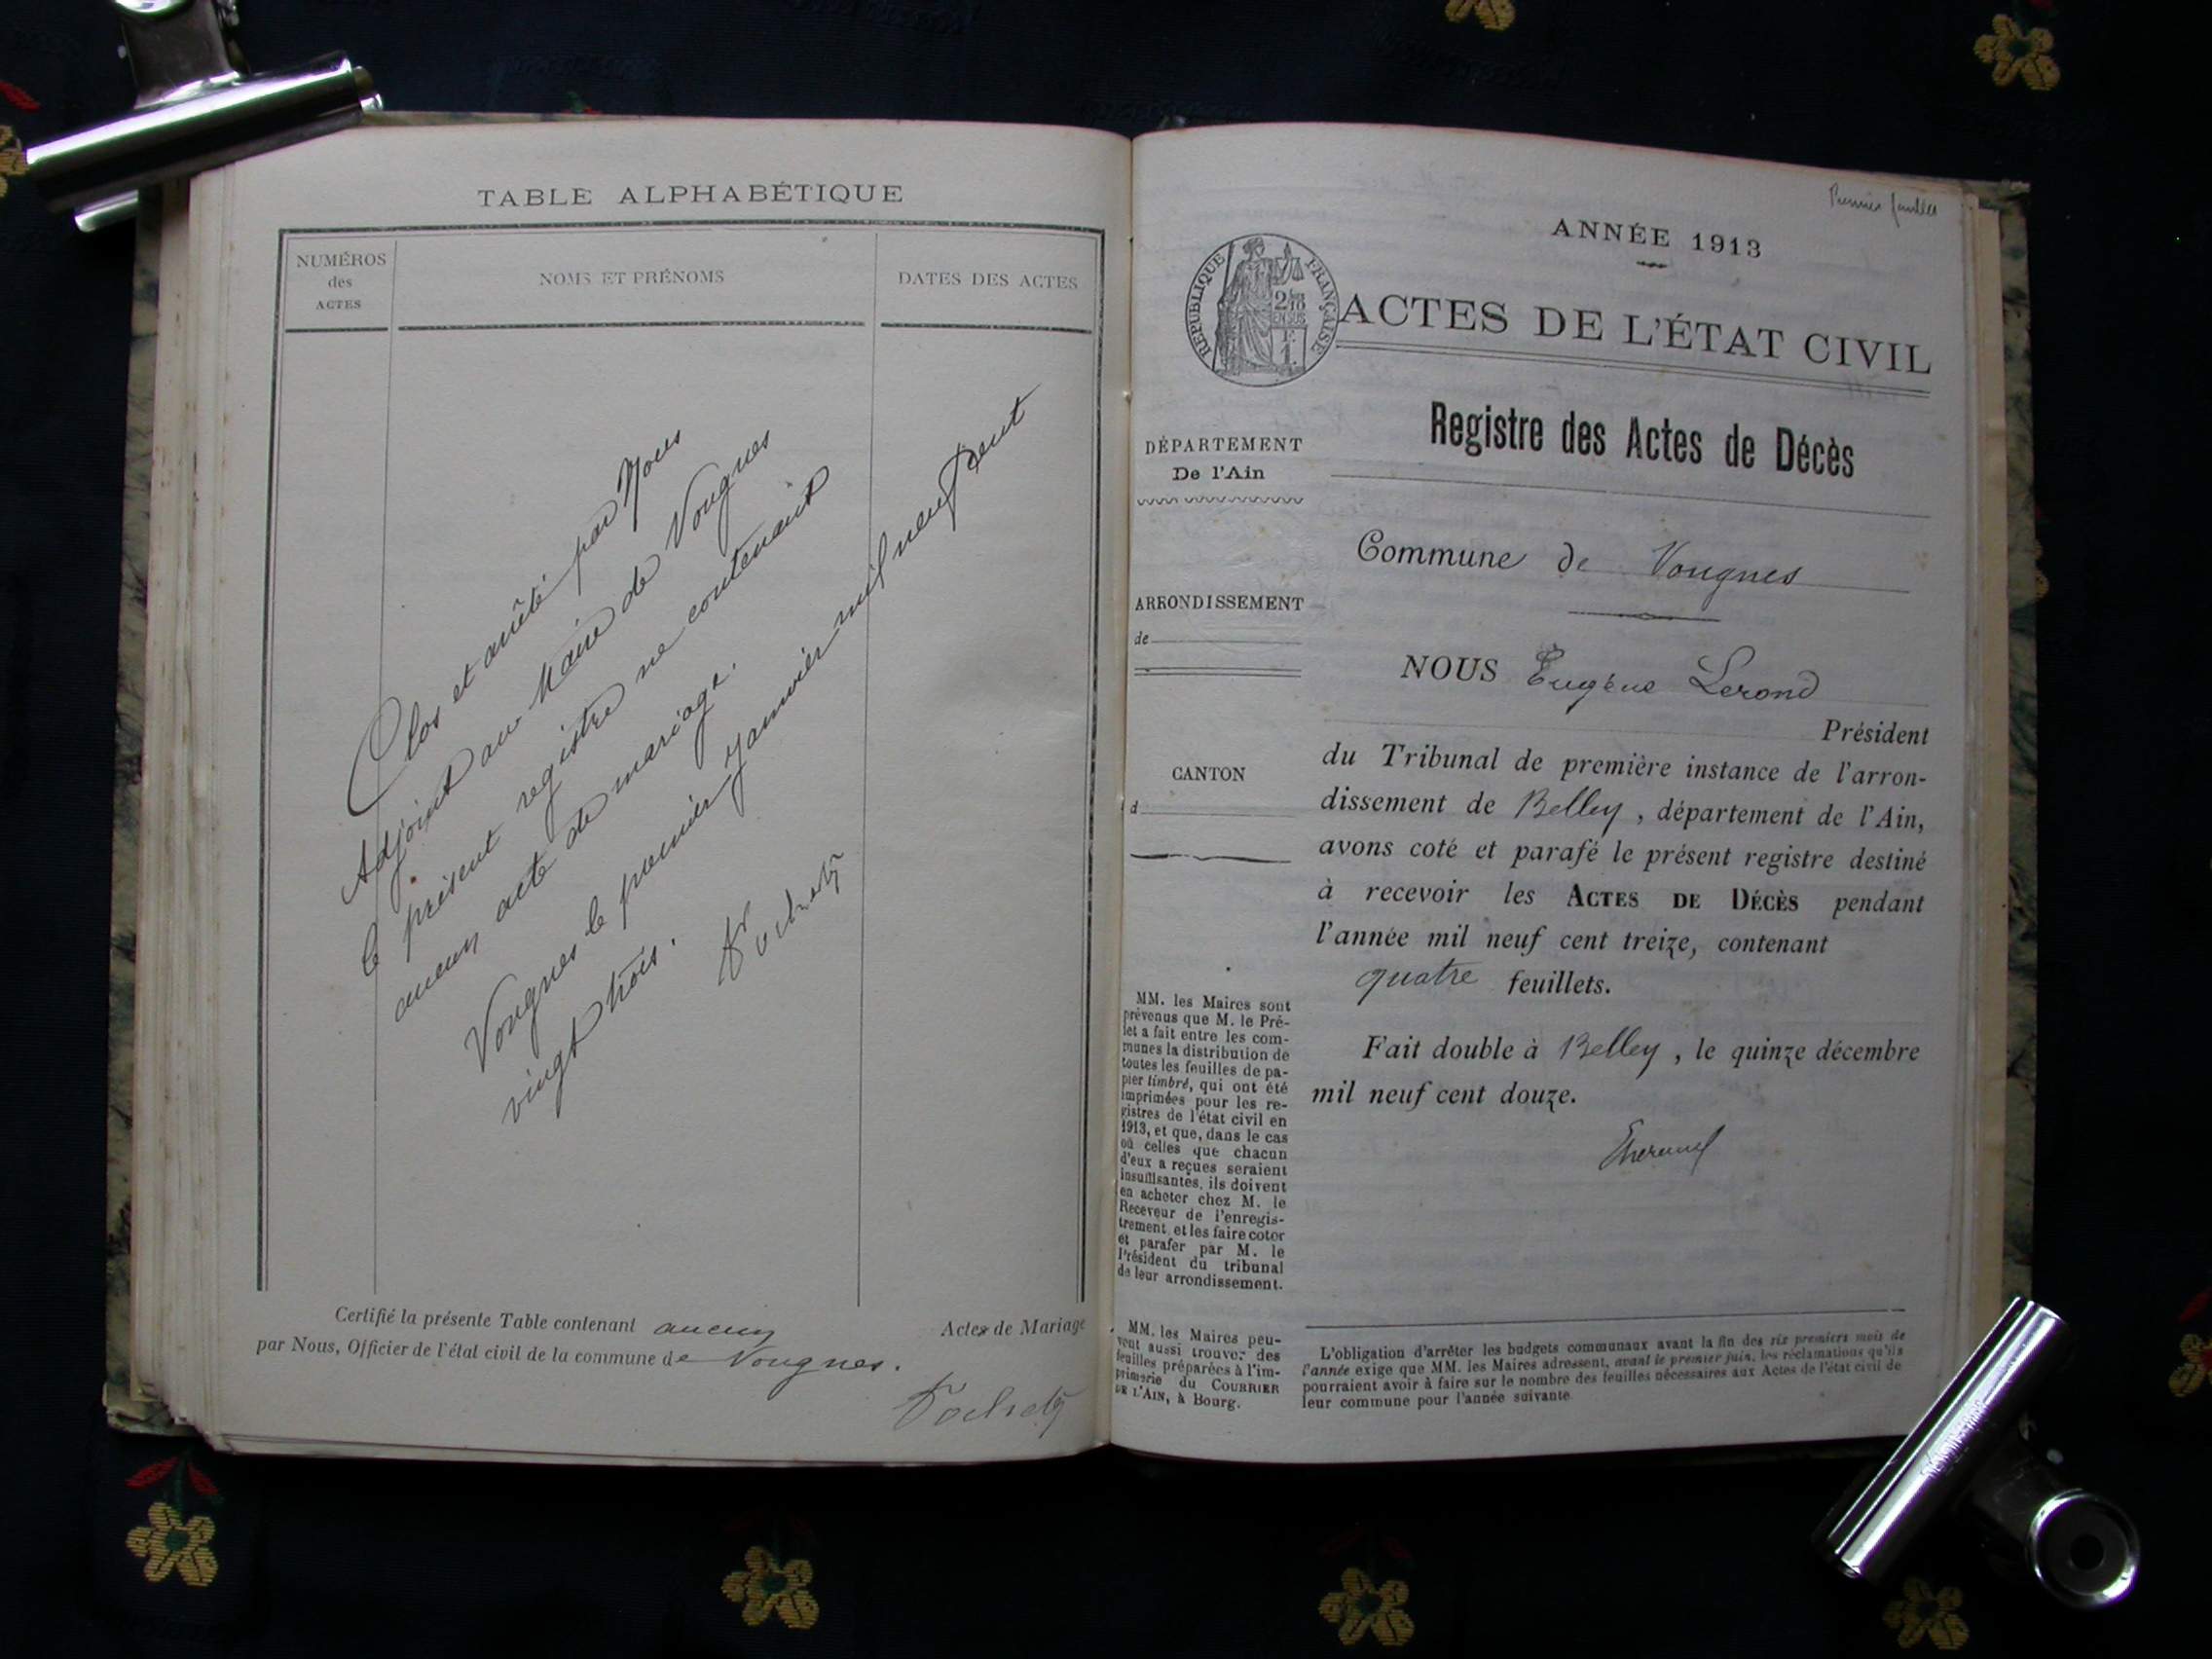 TABLE ALPHABÉTIQUE
NUMÉROS
des
ACTES
NOMS ET PRÉNOMS
DATES DES ACTES
Clos et arrêté par Nous
Adjoint au Maire de Vongnes
le présent registre ne contenant
aucun acte de mariage.
Vongnes le premier Janvier mil neuf cent
vingt trois.
Certifié la présente Table contenant aucun Actes de Mariage
par Nous, Officier de l'état civil de la commune de Vongnes.
Premier feuillet
ANNÉE 1913
RÉPUBLIQUE FRANÇAISE
ACTES DE L'ÉTAT CIVIL
Registre des Actes de Décès
DÉPARTEMENT
De l'Ain
Commune de Vongnes
ARRONDISSEMENT
de
NOUS Eugène Lerond
Président
du Tribunal de première instance de l'arron-
dissement de Belley, département de l'Ain,
avons coté et parafé le présent registre destiné
à recevoir les ACTES DE DÉCÈS pendant
l'année mil neuf cent treize, contenant
quatre feuillets.
Fait double à Belley, le quinze décembre
mil neuf cent douze.
CANTON
d
MM. les Maires sont
prévenus que M. le Pré-
fet a fait entre les com-
munes la distribution de
toutes les feuilles de pa-
pier timbré, qui ont été
imprimées pour les re-
gistres de l'état civil en
1913, et que, dans le cas
où celles que chacun
d'eux a reçues seraient
insuffisantes, ils doivent
en acheter chez M. le
Receveur de l'enregis-
trement et les faire coter
et parafer par M. le
Président du tribunal
de leur arrondissement.
MM. les Maires peu-
vent aussi trouver des
feuilles préparées à l'im-
primerie du COURRIER
DE L'AIN, à Bourg.
L'obligation d'arrêter les budgets communaux avant la fin des six premiers mois de
l'année exige que MM. les Maires adressent, avant le premier juin, les réclamations qu'ils
pourraient avoir à faire sur le nombre des feuilles nécessaires aux Actes de l'état civil de
leur commune pour l'année suivante